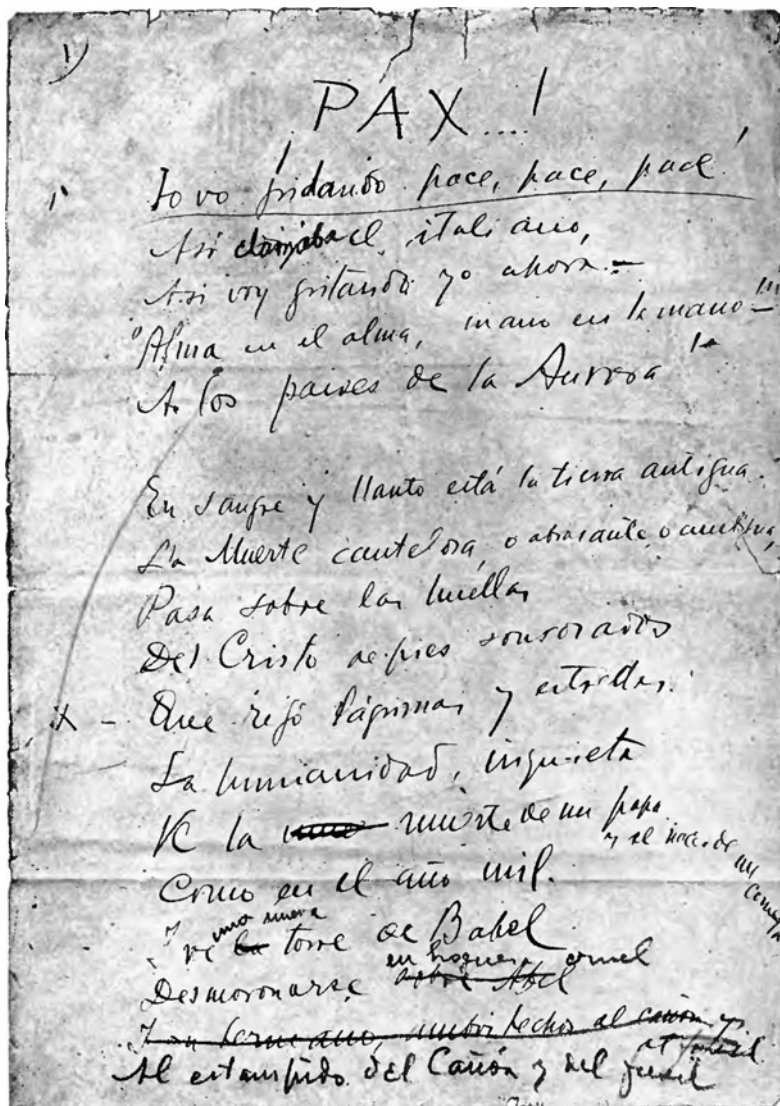 1)
PAX....!
1 Io vo gridando pace, pace, pace!
Así clamaba el italiano,
Así voy gritando yo ahora.—
"Alma en el alma, mano en la mano"—
A los países de la Aurora
En sangre y llanto está la tierra antigua.
La Muerte cautelosa, o abrasante o ambigua,
Pasa sobre las huellas
Del Cristo de pies sonrosados
X - Que regó lágrimas y estrellas.
La humanidad, inquieta
Ve la muerte de un papa y el nacer de un cometa
Como en el año mil.
Y ve la una nueva torre de Babel
Desmoronarse sobre Abel en hoguera cruel
Al estampido del cañón y del fusil